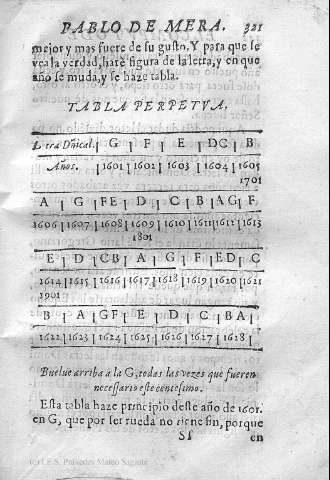 PABLO DE MERA. 321
mejor y mas fuere de su gusto. Y para que se
vea la verdad, harè figura de la letra, y en que
año se muda, y se haze tabla.
TABLA PERPETVA.
Letra Dñical. | G | F | E | DC | B
Años. | 1601 | 1602 | 1603 | 1604 | 1605
1701
A | G | FE | D | C | B | AG | F
1606 | 1607 | 1608 | 1609 | 1610 | 1611 | 1612 | 1613
1801
E | D | CB | A | G | F | ED | C
1614 | 1615 | 1616 | 1617 | 1618 | 1619 | 1620 | 1621
1901
B | A | GF | E | D | C | BA |
1622 | 1623 | 1624 | 1625 | 1626 | 1627 | 1628 |
Buelue arriba a la G, todas las vezes que fueren
necessario este centesimo.
Esta tabla haze principio deste año de 1601.
en G, que por ser rueda no tiene fin, porque
Sf en
(c) I.E.S. Práxedes Mateo Sagasta